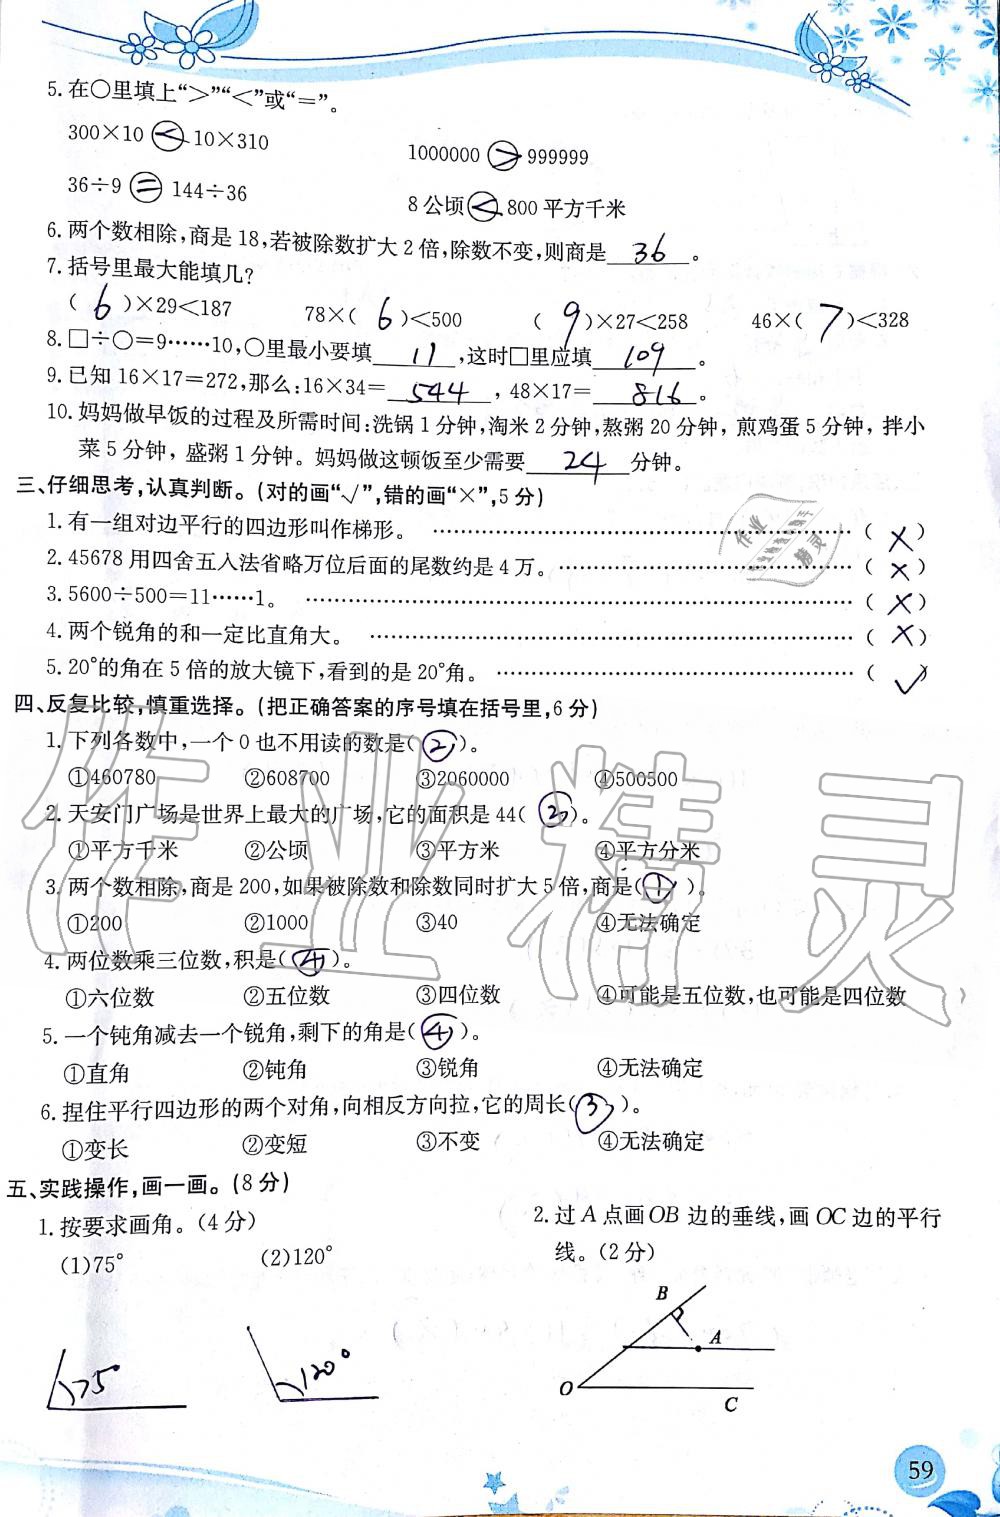 5. 在○里填上“>”“<”或“=”。
300×10 < 10×310
1000000 > 999999
36÷9 = 144÷36
8公顷 < 800平方千米
6. 两个数相除,商是18,若被除数扩大2倍,除数不变,则商是 36 。
7. 括号里最大能填几?
( 6 )×29<187 78×( 6 )<500 ( 9 )×27<258 46×( 7 )<328
8. □÷○=9……10,○里最小要填 11 ,这时□里应填 109 。
9. 已知16×17=272,那么:16×34= 544 ,48×17= 816 。
10. 妈妈做早饭的过程及所需时间:洗锅1分钟,淘米2分钟,熬粥20分钟,煎鸡蛋5分钟,拌小
菜5分钟,盛粥1分钟。妈妈做这顿饭至少需要 24 分钟。
三、仔细思考,认真判断。(对的画“√”,错的画“×”,5分)
1. 有一组对边平行的四边形叫作梯形。 ……( × )
2. 45678用四舍五入法省略万位后面的尾数约是4万。 ……( × )
3. 5600÷500=11……1。 ……( × )
4. 两个锐角的和一定比直角大。 ……( × )
5. 20°的角在5倍的放大镜下,看到的是20°角。 ……( √ )
四、反复比较,慎重选择。(把正确答案的序号填在括号里,6分)
1. 下列各数中,一个0也不用读的数是( ② )。
①460780 ②608700 ③2060000 ④500500
2. 天安门广场是世界上最大的广场,它的面积是44( ② )。
①平方千米 ②公顷 ③平方米 ④平方分米
3. 两个数相除,商是200,如果被除数和除数同时扩大5倍,商是( ① )。
①200 ②1000 ③40 ④无法确定
4. 两位数乘三位数,积是( ④ )。
①六位数 ②五位数 ③四位数 ④可能是五位数,也可能是四位数
5. 一个钝角减去一个锐角,剩下的角是( ④ )。
①直角 ②钝角 ③锐角 ④无法确定
6. 捏住平行四边形的两个对角,向相反方向拉,它的周长( ③ )。
①变长 ②变短 ③不变 ④无法确定
五、实践操作,画一画。(8分)
1. 按要求画角。(4分)
(1)75° (2)120°
75°
120°
2. 过A点画OB边的垂线,画OC边的平行
线。(2分)
B
A
O
C
59
作业精灵
作业
精灵